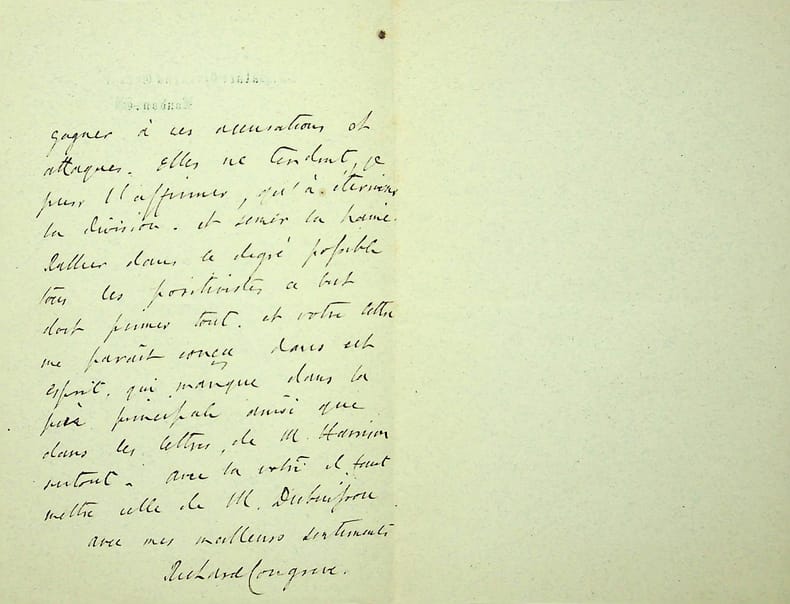 gagner à ces accusations et
attaques. Elles ne tendent, je
puis l'affirmer, qu'à éterniser
la division. et semer la haine.
Rallier dans le degré possible
tous les positivistes ce but
doit primer tout. et votre lettre
me paraît conçu dans cet
esprit. qui manque dans la
pièce principale ainsi que
dans les lettres, de M. Harrison
surtout. avec la votre il faut
mettre celle de M. Dubuisson
avec mes meilleurs sentiments
Richard Congreve.